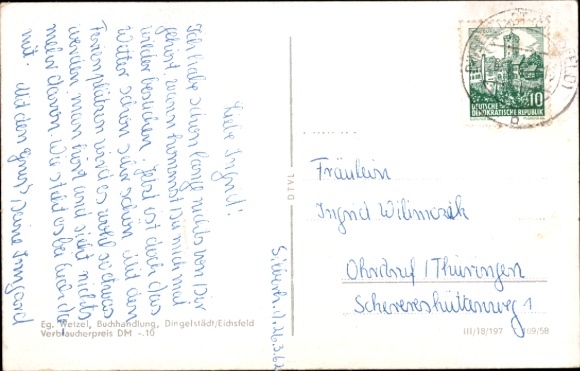 Liebe Ingrid!
Ich habe schon lange nichts von Dir
gehört, wann kommst Du mich mal
wieder besuchen. Jetzt ist doch das
Wetter schon sehr schön. Mit den
Ferienplätzen wird es wohl so etwas
werden, man hört und sieht nichts
mehr davon. Wie steht es bei Euch da-
mit. Mit den Gruß Deine Irmgard
26.3.62
DEUTSCHE
DEMOKRATISCHE REPUBLIK
10
Fräulein
Ingrid Wilimczik
Ohrdruf/Thüringen
Scherershüttenweg 1
Eg. Wetzel, Buchhandlung, Dingelstädt/Eichsfeld
Verbraucherpreis DM -.10
III/18/197
09/58